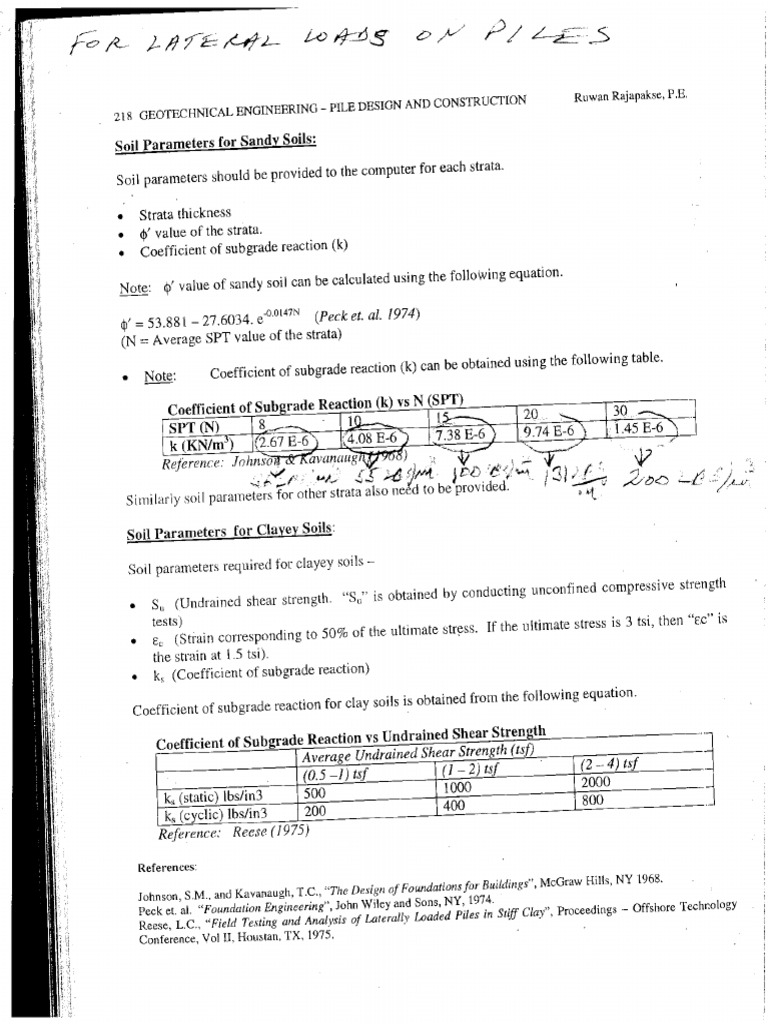 FOR LATERAL LOADS ON PILES
218 GEOTECHNICAL ENGINEERING – PILE DESIGN AND CONSTRUCTION Ruwan Rajapakse, P.E.
Soil Parameters for Sandy Soils:
Soil parameters should be provided to the computer for each strata.
• Strata thickness
• ϕ′ value of the strata.
• Coefficient of subgrade reaction (k)
Note: ϕ′ value of sandy soil can be calculated using the following equation.
ϕ′ = 53.881 – 27.6034. e^-0.0147N (Peck et. al. 1974)
(N = Average SPT value of the strata)
• Note: Coefficient of subgrade reaction (k) can be obtained using the following table.
Coefficient of Subgrade Reaction (k) vs N (SPT)
SPT (N) 8 10 15 20 30
k (KN/m³) 2.67 E-6 4.08 E-6 7.38 E-6 9.74 E-6 1.45 E-6
Reference: Johnson & Kavanaugh (1968)
55 100 131 200
Similarly soil parameters for other strata also need to be provided.
Soil Parameters for Clayey Soils:
Soil parameters required for clayey soils –
• Sᵤ (Undrained shear strength. “Sᵤ” is obtained by conducting unconfined compressive strength
tests)
• εc (Strain corresponding to 50% of the ultimate stress. If the ultimate stress is 3 tsi, then “εc” is
the strain at 1.5 tsi).
• kₛ (Coefficient of subgrade reaction)
Coefficient of subgrade reaction for clay soils is obtained from the following equation.
Coefficient of Subgrade Reaction vs Undrained Shear Strength
Average Undrained Shear Strength (tsf)
(0.5 –1) tsf (1 – 2) tsf (2 – 4) tsf
kₛ (static) lbs/in3 500 1000 2000
kₛ (cyclic) lbs/in3 200 400 800
Reference: Reese (1975)
References:
Johnson, S.M., and Kavanaugh, T.C., “The Design of Foundations for Buildings”, McGraw Hills, NY 1968.
Peck et. al. “Foundation Engineering”, John Wiley and Sons, NY, 1974.
Reese, L.C., “Field Testing and Analysis of Laterally Loaded Piles in Stiff Clay”, Proceedings – Offshore Technology
Conference, Vol II, Houstan, TX, 1975.